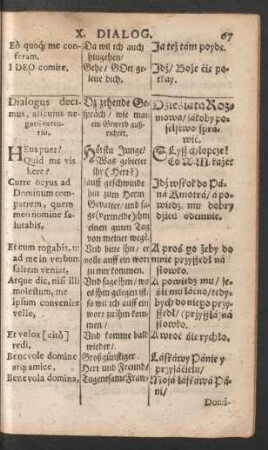 X. DIALOG. 67
Eò quoq́; me conferam.
Da wil ich auch hingehen/
Ja też tám poydę.
I DEO comite.
Gehe/ GOtt geleite dich.
Idź/ Boże cię
Dialogus decimus,
Dz zehende Gespräch/ wie man ein Gewerb
Dziesiąta Rozmowa/ jákoby poselstwo spráwić.
HEus puer!
Quid me vis here?
Hörstu Junge!
Was gebietet ihr (Herr?)
Słysz chłopcze!
Co W. M. każe?
Curre ocyus ad Dominum compatrem, quem meo nomine salutabis,
Lauff geschwinde hin zum Herrn Gevatter/ und sage (vermelde) ihm einen guten Tag von meinet wegẽ.
Idź wskok do Páná Kmotrá/ á powiedz mu dobry dzień odemnie.
Et eum rogabis, ut ad me in verbum saltem veniat,
Und bitte ihn/ er wolle auff ein wort zu mir kommen.
A proś go żeby do mnie przyszedł ná słowko.
Atque dic, nisi illi molestum, me ipsum convenire velle,
Und sage ihm/ wo es ihm gelegen ist/ so wil ich auff ein wort zu ihm kommen/
A powiedz mu/ jeśli mu łácno/ tedybych do niego przyjszedł/ (przyjśł) ná słowko.
Et velox [citò] redi,
Und komme bald wieder/
A wroć się rychło.
Benevole domine atq; amice,
Großgünstiger Herr und Freund/
Láskáwy Pánie y przyjacielu/
Benevola domina,
Tugentsame Frau/
Moja láskáwa Páni/
Domi-